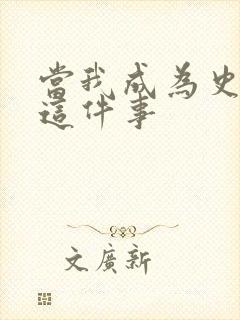 當我成為史
這件事
文廣新